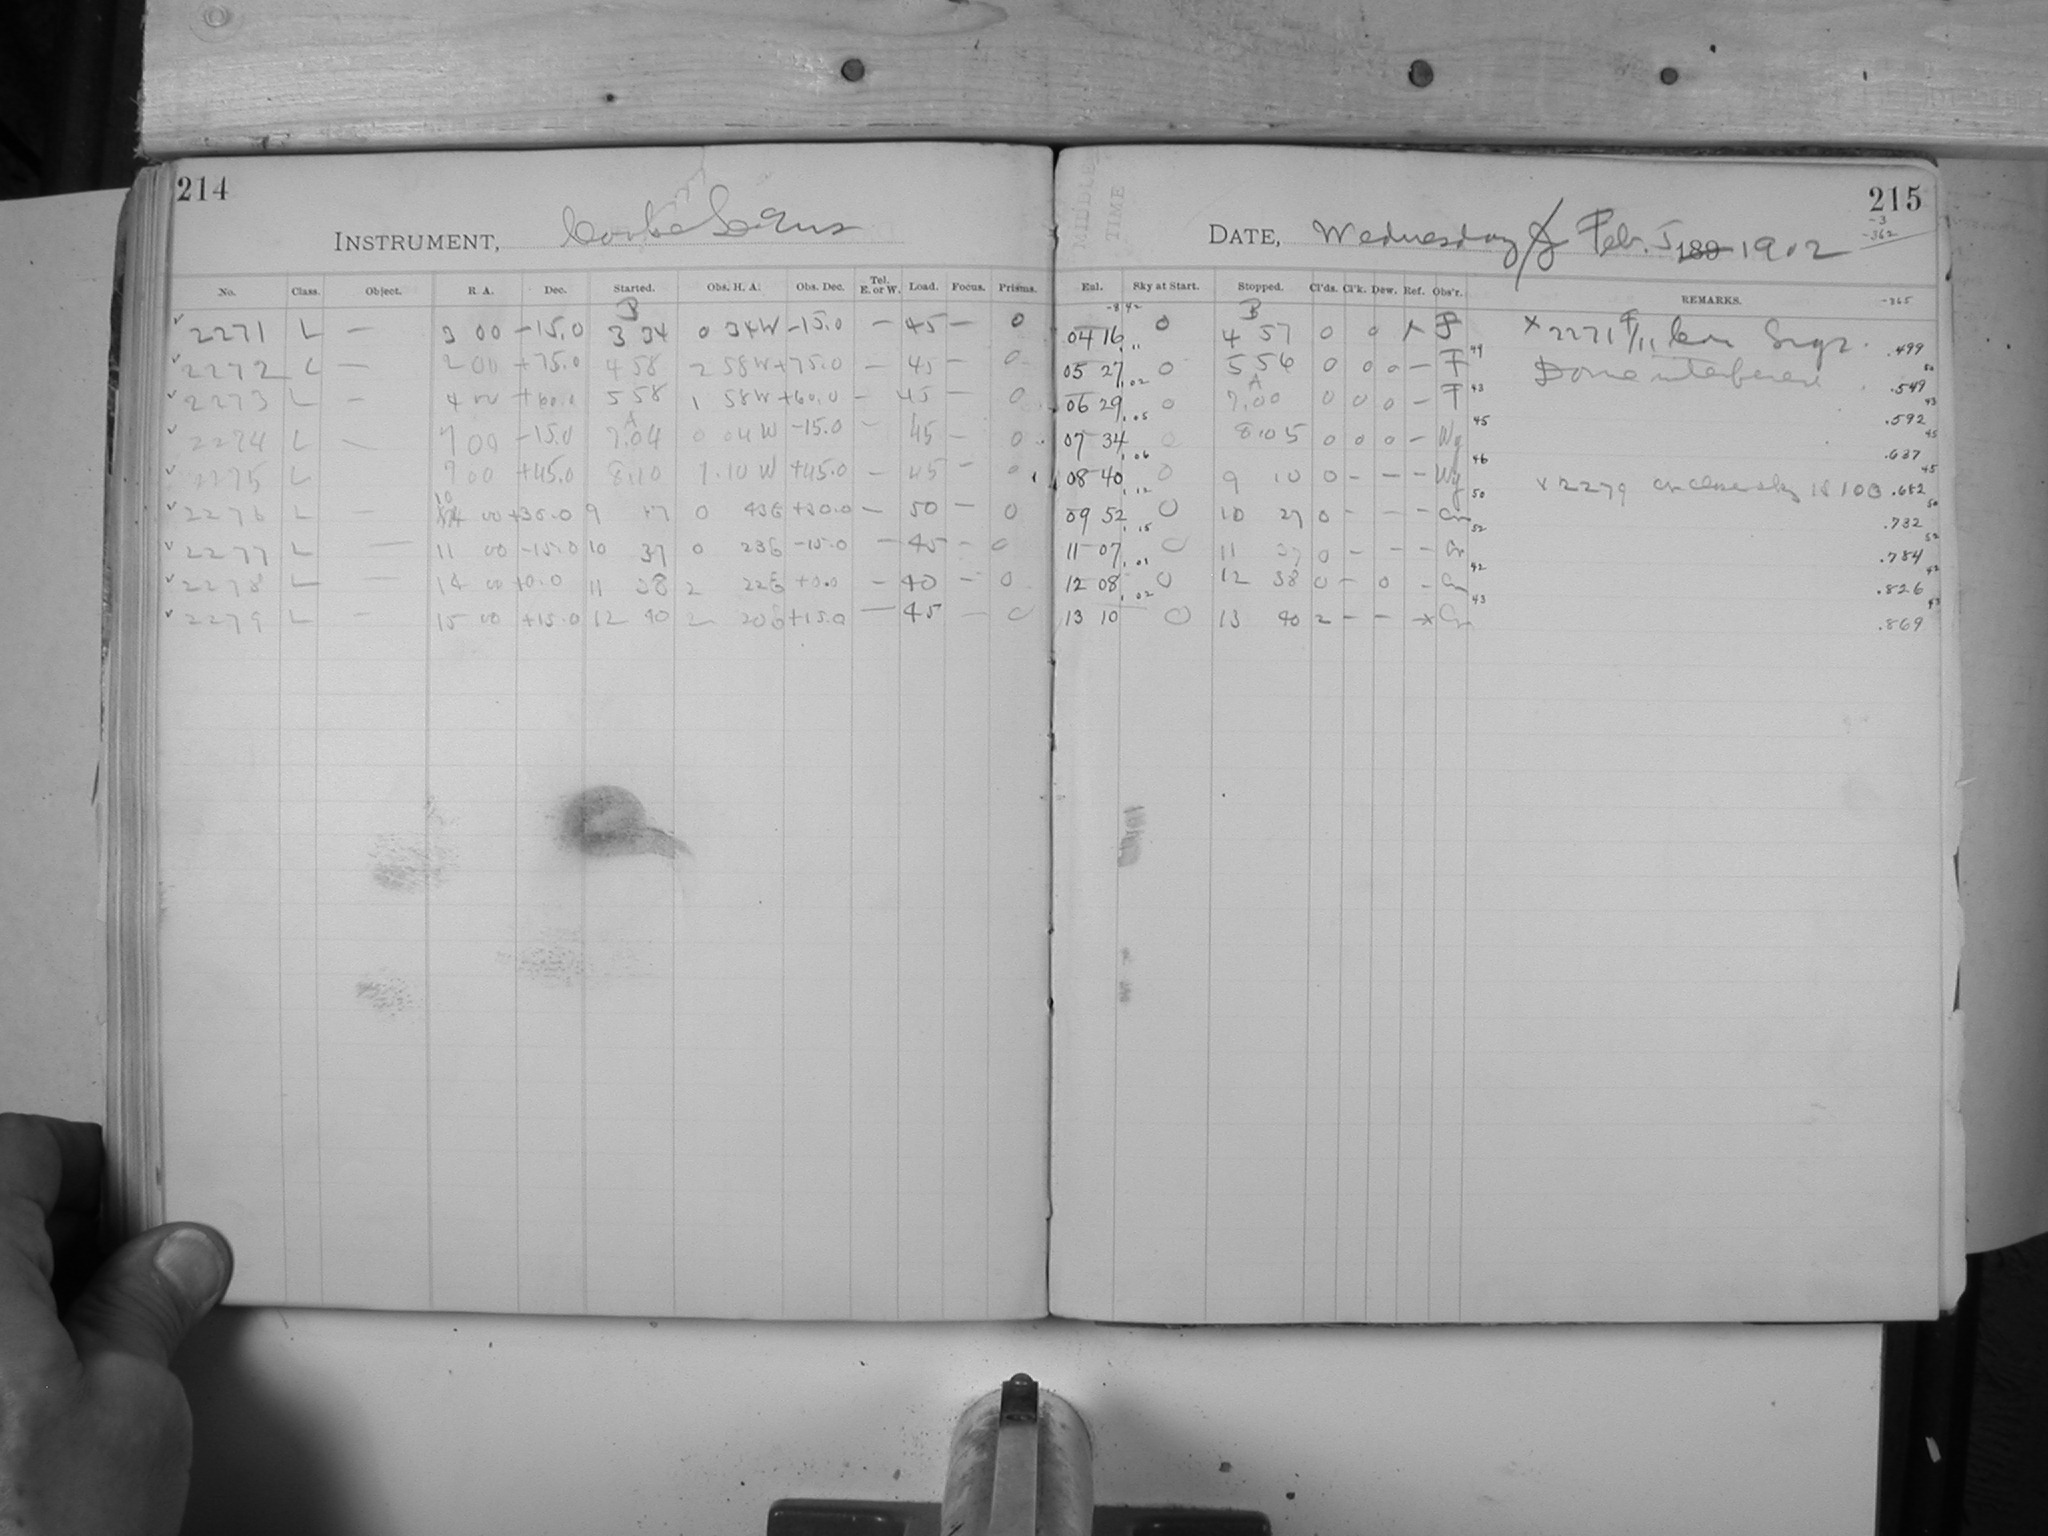 214
INSTRUMENT, Cooke Lens
No. Class. Object. R A. Dec. Started. Obs. H. A. Obs. Dec. Tel. E. or W. Load. Focus. Prisms.
B
2271 L — 3 00 -15.0 3 34 0 34W -15.0 — 45 — 0
2272 L — 2 00 +75.0 4 58 2 58W +75.0 — 45 — 0
2273 L — 4 00 +60.0 5 58 1 58W +60.0 — 45 — 0
A
2274 L — 7 00 -15.0 7.04 0 04W -15.0 — 45 — 0
2275 L 7 00 +45.0 8.10 1.10 W +45.0 — 45 — 0
2276 L — 10 00 +30.0 9 17 0 43E +30.0 — 50 — 0
2277 L — 11 00 -15.0 10 37 0 23E -15.0 — 45 — 0
2278 L — 14 00 +0.0 11 38 2 22E +0.0 — 40 — 0
2279 L — 15 00 +15.0 12 40 2 20E +15.0 — 45 — 0
MIDDLE TIME
215
DATE, Wednesday Feb. 5 189 1902
-3
-362
Exl. Sky at Start. Stopped. Cl'ds. Cl'k. Dew. Ref. Obs'r. REMARKS.
-365
-8 42
B
04 16 0 4 57 0 0 F × 2271 .499
05 27 0 5 56 0 0 0 — F Dome interfered .549
A
06 29 0 7.00 0 0 0 — F .592
07 34 0 8.05 0 0 0 — Wy .637
08 40 0 9 10 0 — — — Wy × 2279 .682
09 52 0 10 27 0 — — — .732
11 07 0 11 37 0 — — — .784
12 08 0 12 38 0 — 0 — .826
13 10 0 13 40 2 — — × .869